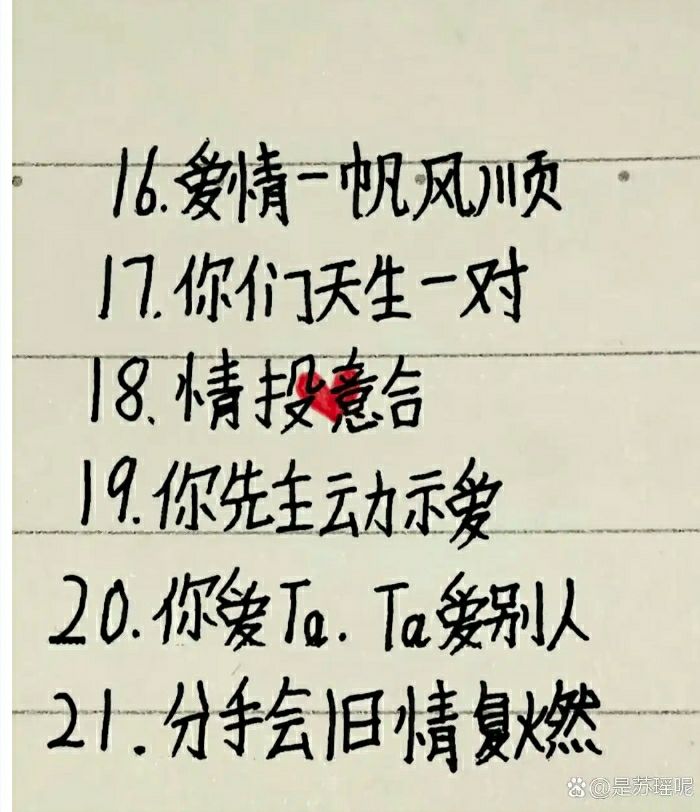 16.爱情一帆风顺
17.你们天生一对
18.情投意合
19.你先主动示爱
20.你爱Ta.Ta爱别人
21.分手会旧情复燃
@是苏瑶呢